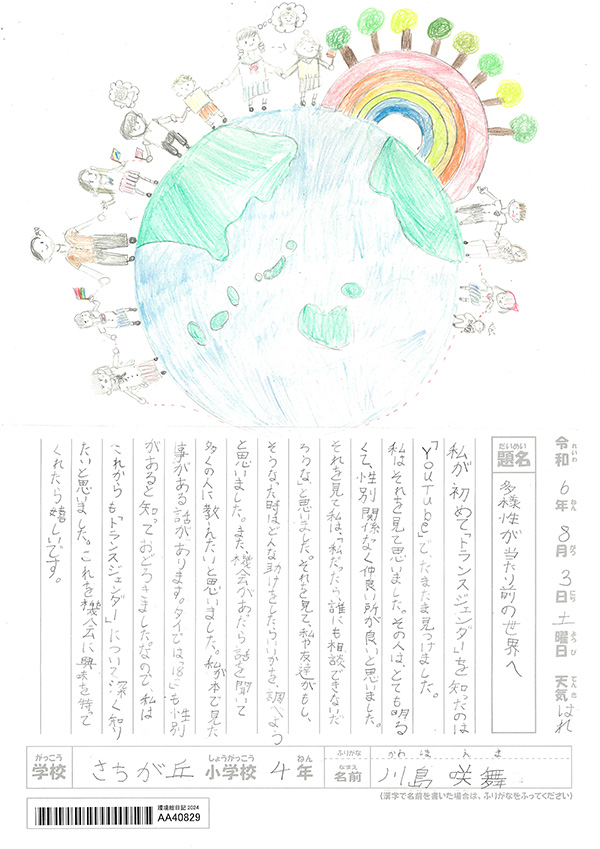 令和 6年 8月 3日 土曜日 天気 はれ
れいわ ねん がつ にち ようび てんき
だいめい
題名
多様性が当たり前の世界へ
私が初めて「トランスジェンダー」を知ったのは
「YouTube」で、たまたま見つけました。
私はそれを見て思いました。その人は、とても明る
くて、性別関係なく仲良い所が良いと思いました。
それを見て私は、「私だったら、誰にも相談できないだ
ろうな」と思いました。それを見て、私や友達がもし、
そうなった時はどんな助けをしたらいいかを、調べよう
と思いました。また、機会があたら話を聞いて
多くの人に教えたいと思いました。私が本で見た
事がある話があります。タイでは“18”も性別
があると知っておどろきましただなので、私は
これからも「トランスジェンダー」について深く知り
たいと思いました。これを機会に興味を持って
くれたら嬉しいです。
がっこう しょうがっこう ねん ふりがな かわ しま え ま
学校 さちが丘 小学校 4年 なまえ 名前 川島 咲舞
(漢字で名前を書いた場合は、ふりがなをふってください)
環境絵日記2024
AA40829